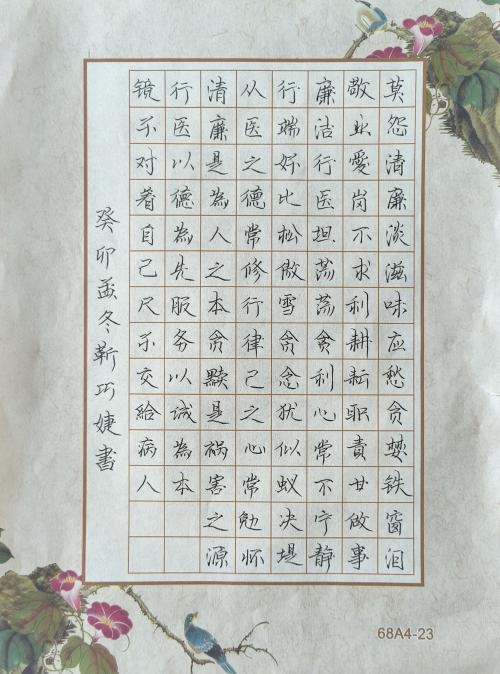 莫怨清廉淡滋味应愁贪婪铁窗泪
敬业愛岗不求利耕耘职責甘做事
廉洁行医坦荡荡贪利心常不宁静
行端好比松傲雪贪念犹似蚁决堤
从医之德常修行律己之心常勉怀
清廉是為人之本贪黩是祸害之源
行医以德為先服务以诚為本
镜不对着自己尺不交給病人
癸卯孟冬靳巧婕書
68A4-23